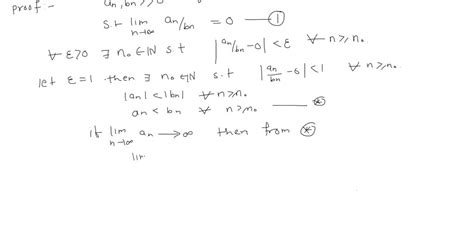 proof - an, bn >> 0
s.t lim n→∞ an/bn = 0 — ①
∀ ε>0 ∃ n₀∈ℕ s.t |an/bn - 0| < ε ∀ n≥n₀
let ε=1 then ∃ n₀∈ℕ s.t |an/bn - 0| < 1 ∀ n≥n₀
|an| < |bn| ∀ n≥n₀
an < bn ∀ n≥n₀ — ⊛
if lim n→∞ an → ∞ then from ⊛
lim